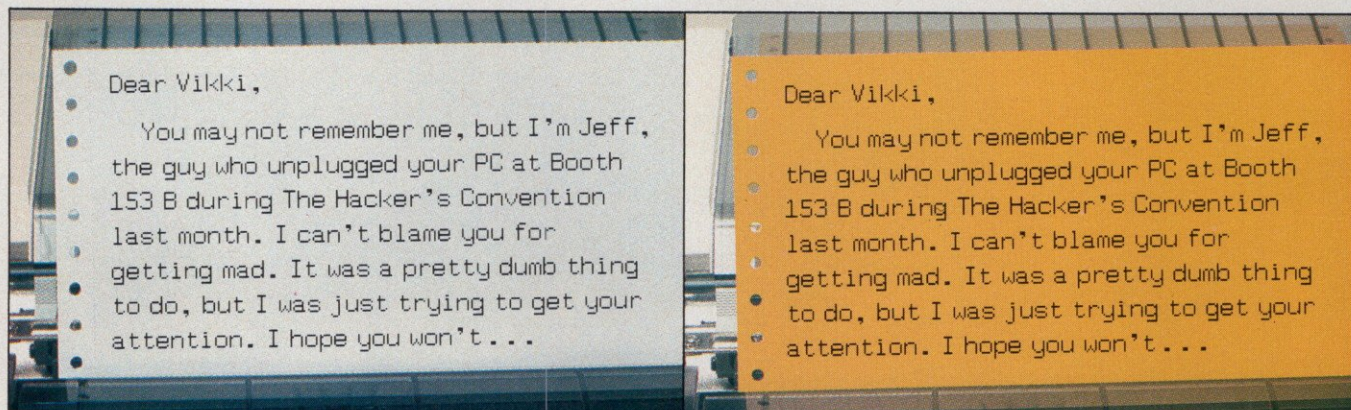 Dear Vikki,
You may not remember me, but I'm Jeff,
the guy who unplugged your PC at Booth
153 B during The Hacker's Convention
last month. I can't blame you for
getting mad. It was a pretty dumb thing
to do, but I was just trying to get your
attention. I hope you won't...
Dear Vikki,
You may not remember me, but I'm Jeff,
the guy who unplugged your PC at Booth
153 B during The Hacker's Convention
last month. I can't blame you for
getting mad. It was a pretty dumb thing
to do, but I was just trying to get your
attention. I hope you won't...